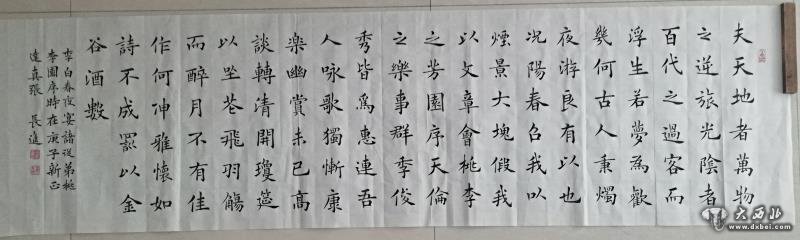 夫天地者萬物
之逆旅光陰者
百代之過客而
浮生若夢為歡
幾何古人秉燭
夜游良有以也
況陽春召我以
煙景大塊假我
以文章會桃李
之芳園序天倫
之樂事群季俊
秀皆為惠連吾
人咏歌獨慚康
樂幽賞未已高
談轉清開瓊筵
以坐花飛羽觴
而醉月不有佳
作何伸雅懷如
詩不成罰以金
谷酒數
李白春夜宴諸從弟桃
李園序時在庚子新正
達真張長進
大西北
www.dxbei.com